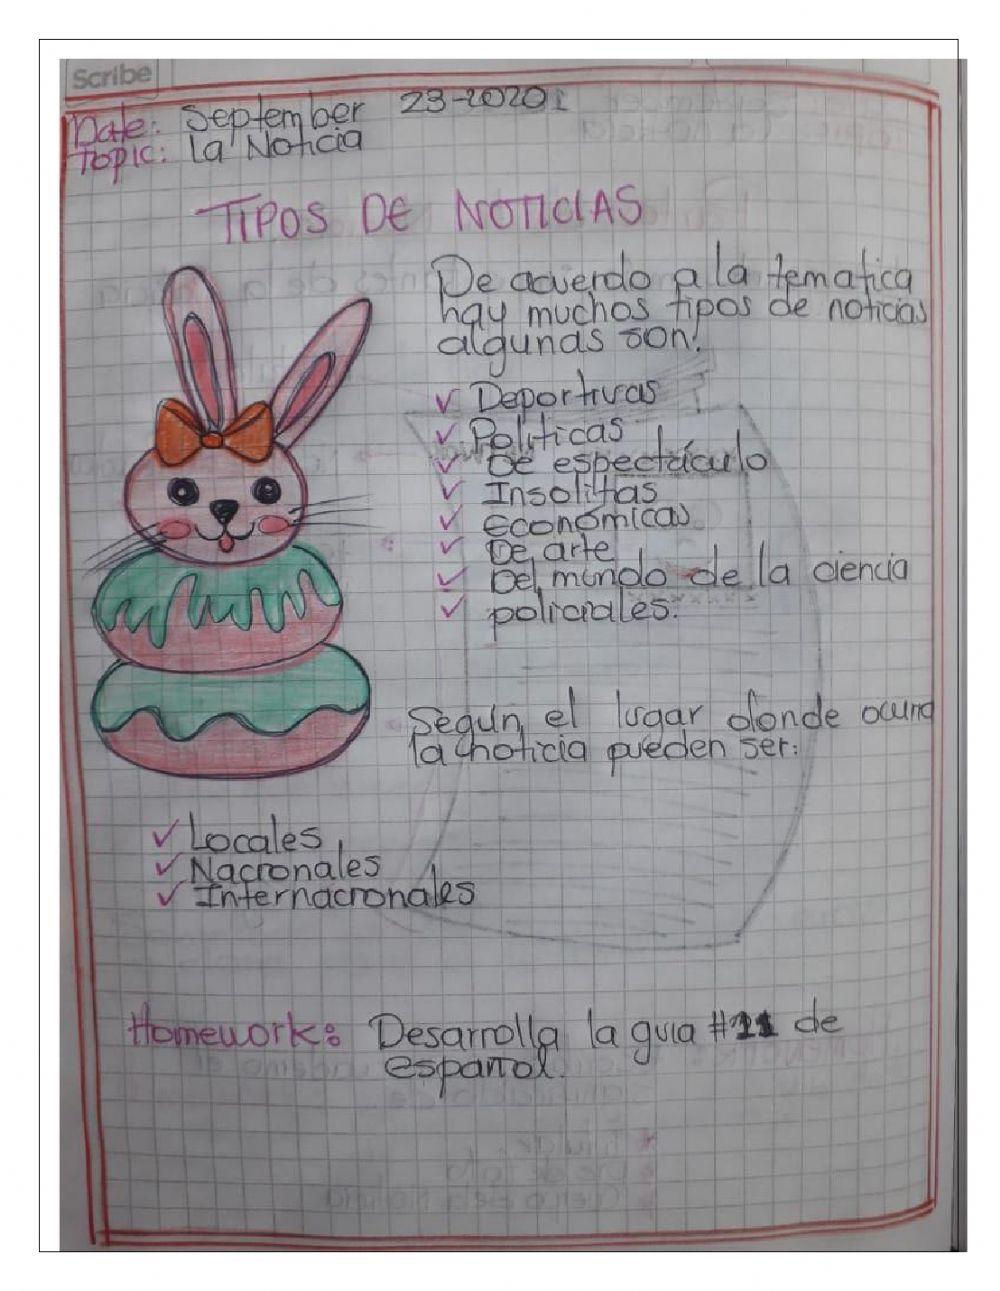 Scribe
Date: September 23-2020
Topic: La Noticia
TIPOS DE NOTICIAS
De acuerdo a la tematica
hay muchos tipos de noticias
algunas son:
✓ Deportivas
✓ Politicas
✓ De espectáculo
✓ Insolitas
✓ económicas
✓ De arte
✓ Del mundo de la ciencia
✓ policiales.
Según el lugar donde ocurra
la noticia pueden ser:
✓ Locales
✓ Nacionales
✓ Internacionales
Homework: Desarrolla la guia #11 de
español.